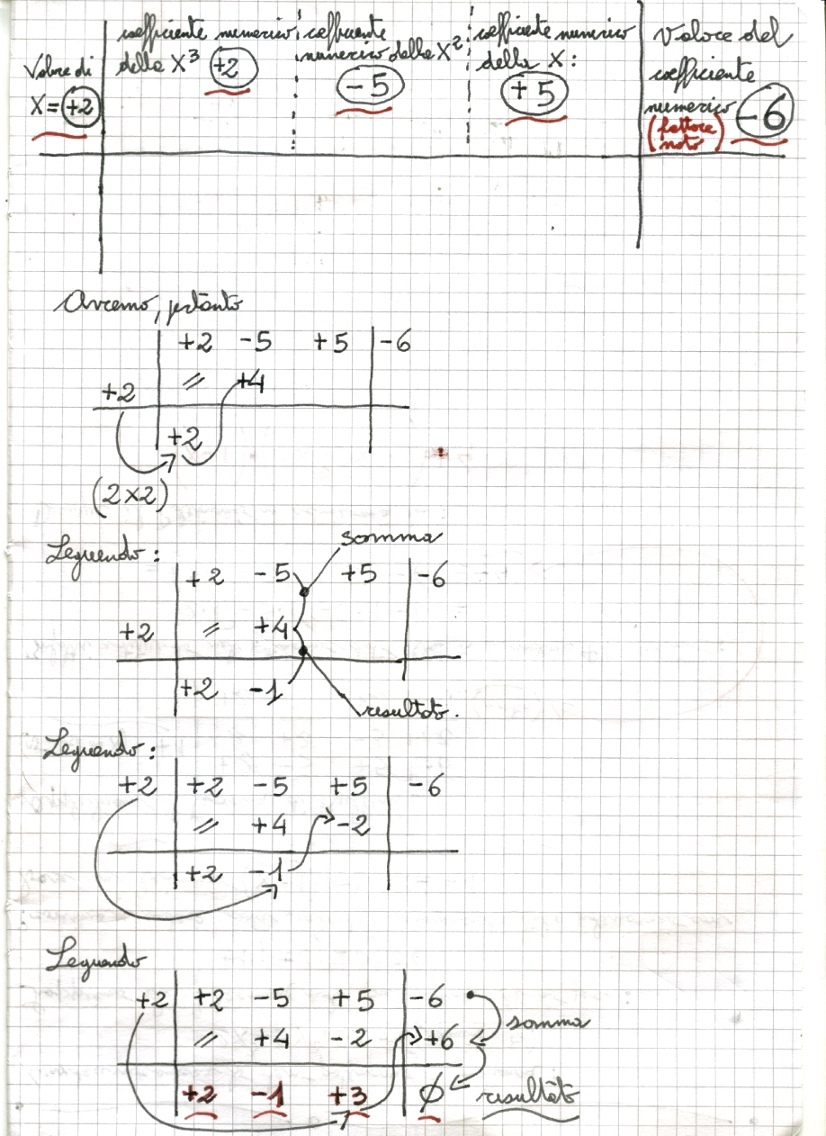 Valore di
X= +2
coefficiente numerico
della X³ +2
coefficiente
numerico della X²
-5
coefficiente numerico
della X:
+5
Valore del
coefficiente
numerico -6
(fattore
noto)
Avremo, pertanto
+2 -5 +5 -6
+2 〃 +4
+2
(2×2)
Seguendo:
somma
+2 -5 +5 -6
+2 〃 +4
+2 -1
resultato.
Seguendo:
+2 +2 -5 +5 -6
〃 +4 -2
+2 -1
Seguendo
+2 +2 -5 +5 -6
〃 +4 -2 +6
somma
+2 -1 +3 ∅
resultato